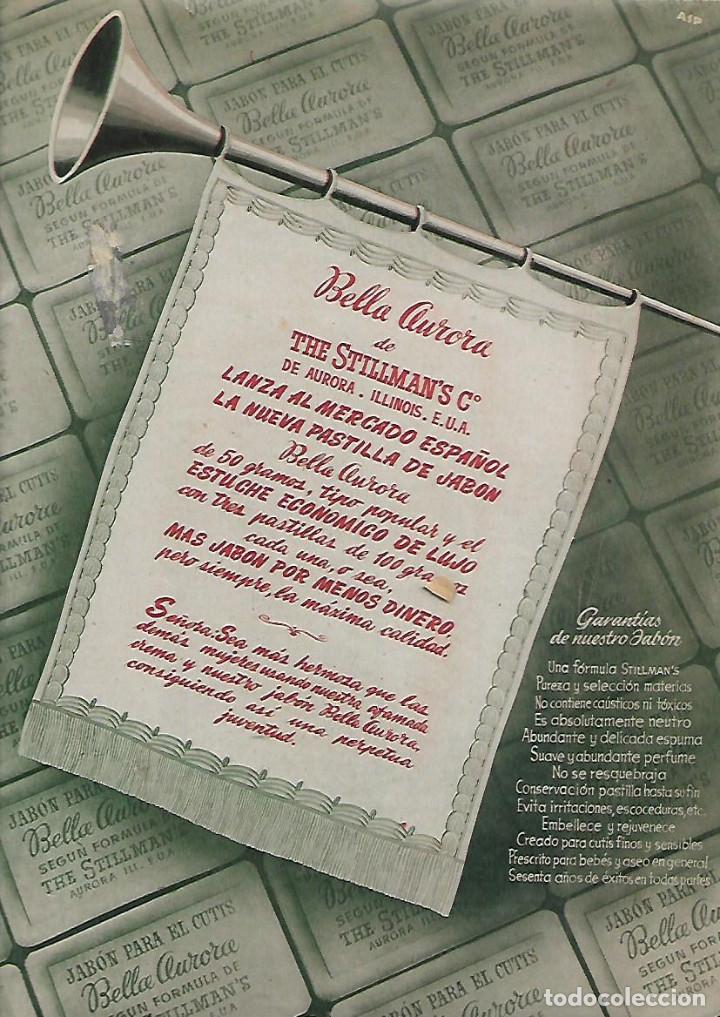 JABÓN PARA EL CUTIS
Bella Aurora
SEGUN FORMULA DE
THE STILLMAN'S
AURORA ILL. E.U.A
ASP
Bella Aurora
de
THE STILLMAN'S Cº
DE AURORA - ILLINOIS - E.U.A.
LANZA AL MERCADO ESPAÑOL
LA NUEVA PASTILLA DE JABON
Bella Aurora
de 50 gramos, tipo popular y el
ESTUCHE ECONOMICO DE LUJO
con tres pastillas de 100
cada una, o sea,
MAS JABON POR MENOS DINERO,
pero siempre, la máxima calidad.
Señora: Sea más hermosa que las
demás mujeres usando nuestra afamada
crema y nuestro jabón Bella Aurora,
consiguiendo así una perpetua
juventud.
Garantías
de nuestro Jabón
Una fórmula STILLMAN'S
Pureza y selección materias
No contiene caústicos ni tóxicos
Es absolutamente neutro
Abundante y delicada espuma
Suave y abundante perfume
No se resquebraja
Conservación pastilla hasta su fin
Evita irritaciones, escoceduras, etc.
Embellece y rejuvenece
Creado para cutis finos y sensibles
Prescrito para bebés y aseo en general
Sesenta años de éxitos en todas partes
JABÓN PARA EL CUTIS
Bella Aurora
SEGUN FORMULA DE
THE STILLMAN'S
AURORA ILL. E.U.A
JABÓN PARA EL CUTIS
Bella Aurora
SEGUN FORMULA DE
todocoleccion